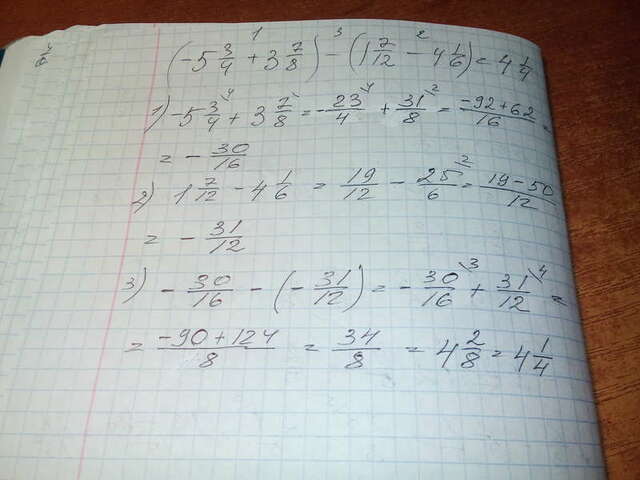 1 3 2
(-5 3/4 + 3 7/8) - (1 7/12 - 4 1/6) = 4 1/4
1) -5 3/4 \4 + 3 7/8 \2 = -23/4 \4 + 31/8 \2 = (-92+62)/16 =
= -30/16
2) 1 7/12 - 4 1/6 = 19/12 - 25/6 \2 = (19-50)/12
= -31/12
3) -30/16 - (-31/12) = -30/16 \3 + 31/12 \4 =
= (-90+124)/8 = 34/8 = 4 2/8 = 4 1/4